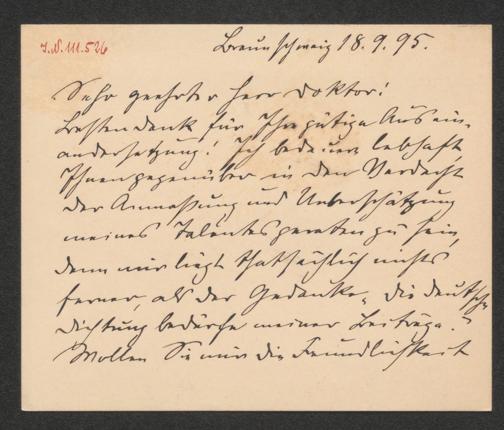 J.N. 111.526
Braunschweig 18.9.95.
Sehr geehrter Herr Doktor!
Besten Dank für Ihre gütige Ausein-
andersetzung! Ich bedaure lebhaft,
Ihnen gegenüber in den Verdacht
der Anmaßung und Ueberschätzung
meines Talentes geraten zu sein,
denn mir liegt thatsächlich nichts
ferner, als der Gedanke, „die deutsche
Dichtung bedürfe meiner Beiträge."
Wollen Sie mir die Freundlichkeit